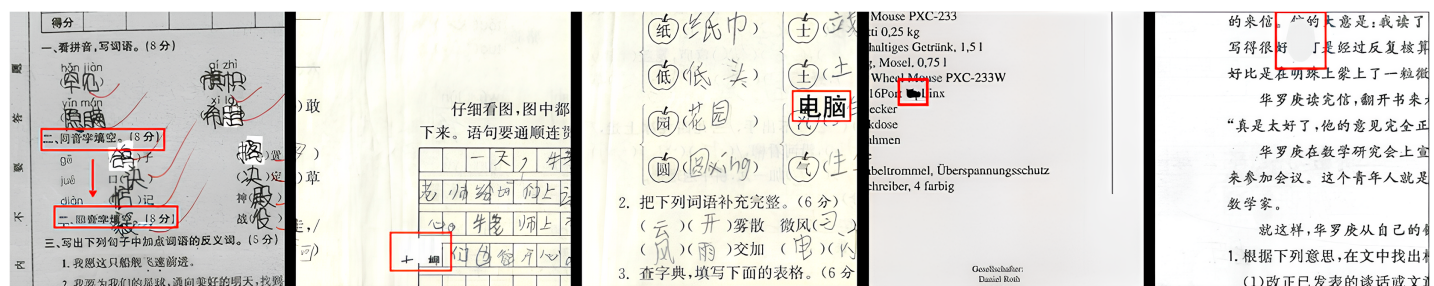 得分
一、看拼音,写词语。(8分)
hǎn jiàn
qí zhì
罕见
旗帜
yǐn mán
xī là
隐瞒
希腊
二、同音字填空。(8分)
gē
鸽
)子
搁
)置
jué
口(
诀
决
)定
diàn
惦
)记
神(
殿
二、同音字填空。(8分)
战(
役
三、写出下列句子中加点词语的反义词。(5分)
1.我愿这只船舰飞速前进。
题
答
要
不
内
)敢
)草
仔细看图,图中都
下来。语句要通顺连贯
一天,牛老
老师给同们上
心。牛老师上
十
纸(纸巾)
低(低头)
园(花园)
圆(圆xing)
土
土(土
电脑
汽
气(生
2. 把下列词语补充完整。(6分)
(云)(开)雾散 微风(习
(风)(雨)交加 (电)(
3. 查字典,填写下面的表格。(6分
Mouse PXC-233
tti 0,25 kg
haltiges Getränk, 1,5 l
g, Mosel, 0,75 l
Wheel Mouse PXC-233W
16Port
inx
ecker
kdose
ahmen
beltrommel, Überspannungsschutz
chreiber, 4 farbig
Gesellschafter:
Daniel Roth
的来信。信的大意是:我读了
写得很好
是经过反复核算
好比是在明珠上蒙上了一粒微
华罗庚读完信,翻开书来
“真是太好了,他的意见完全正
华罗庚在数学研究会上宣
来参加会议。这个青年人就是
数学家。
就这样,华罗庚从自己的
1. 根据下列意思,在文中找出相
(1)改正已发表的谈话或文章